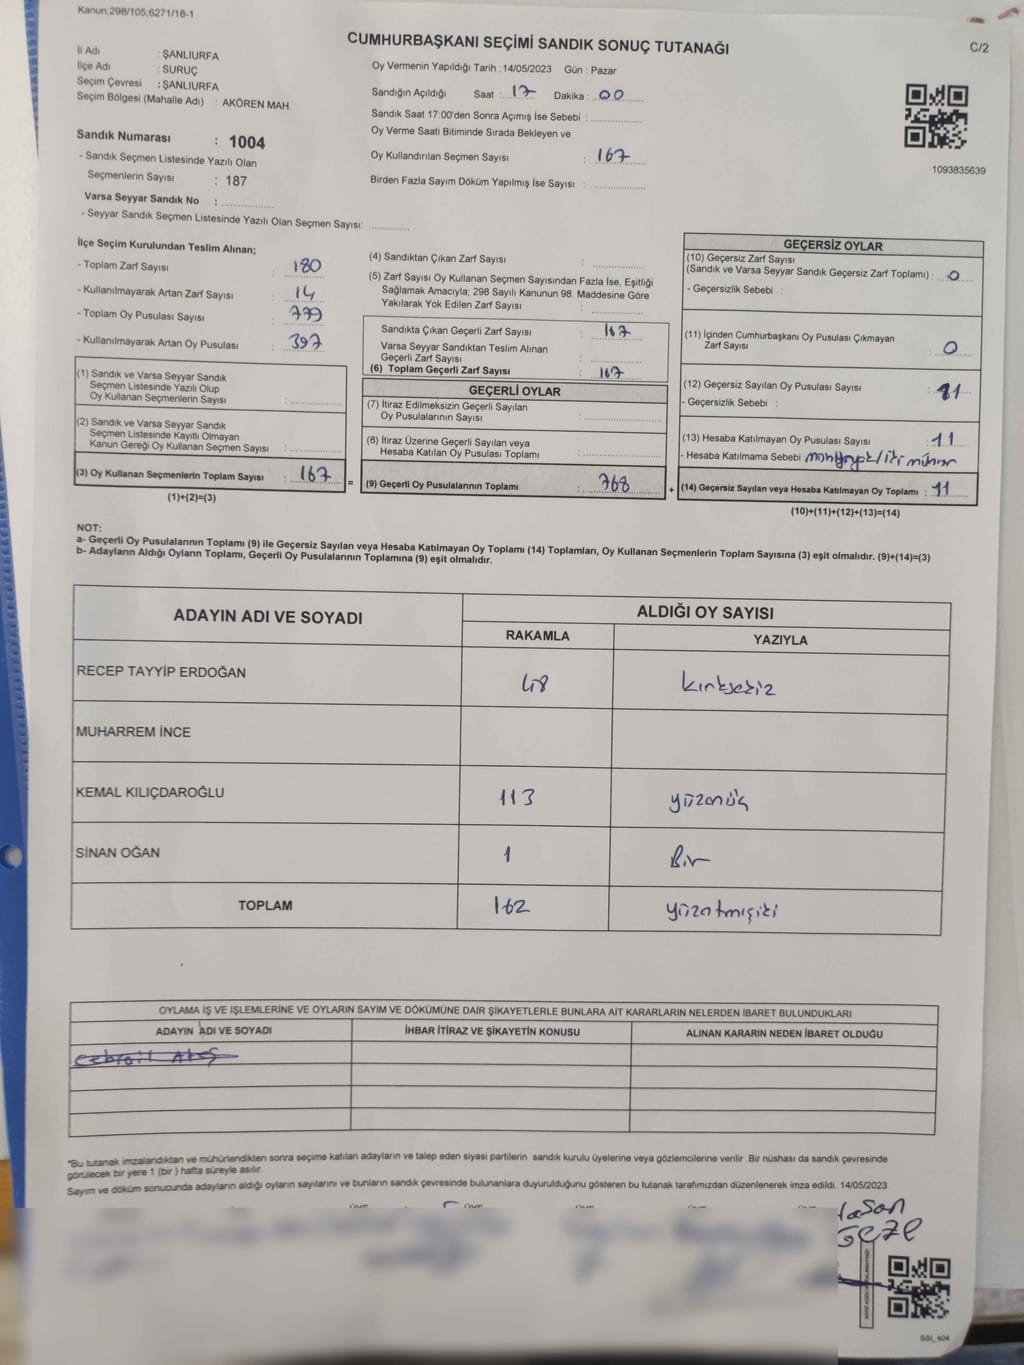 Kanun,298/105;6271/18-1
CUMHURBAŞKANI SEÇİMİ SANDIK SONUÇ TUTANAĞI
C/2
İl Adı : ŞANLIURFA
İlçe Adı : SURUÇ
Seçim Çevresi : ŞANLIURFA
Seçim Bölgesi (Mahalle Adı) : AKÖREN MAH.
Sandık Numarası : 1004
- Sandık Seçmen Listesinde Yazılı Olan
Seçmenlerin Sayısı : 187
Varsa Seyyar Sandık No : ..............
- Seyyar Sandık Seçmen Listesinde Yazılı Olan Seçmen Sayısı: ..............
Oy Vermenin Yapıldığı Tarih : 14/05/2023 Gün : Pazar
Sandığın Açıldığı Saat : 17 Dakika : 00
Sandık Saat 17:00'den Sonra Açımış İse Sebebi : ..............
Oy Verme Saati Bitiminde Sırada Bekleyen ve
Oy Kullandırılan Seçmen Sayısı : 167
Birden Fazla Sayım Döküm Yapılmış İse Sayısı : ..............
1093835639
İlçe Seçim Kurulundan Teslim Alınan;
- Toplam Zarf Sayısı : 180
- Kullanılmayarak Artan Zarf Sayısı : 14
- Toplam Oy Pusulası Sayısı :
- Kullanılmayarak Artan Oy Pusulası : 397
(1) Sandık ve Varsa Seyyar Sandık
Seçmen Listesinde Yazılı Olup
Oy Kullanan Seçmenlerin Sayısı : ..............
(2) Sandık ve Varsa Seyyar Sandık
Seçmen Listesinde Kayıtlı Olmayan
Kanun Gereği Oy Kullanan Seçmen Sayısı : ..............
(3) Oy Kullanan Seçmenlerin Toplam Sayısı : 167 =
(1)+(2)=(3)
(4) Sandıktan Çıkan Zarf Sayısı : ..............
(5) Zarf Sayısı Oy Kullanan Seçmen Sayısından Fazla İse, Eşitliği
Sağlamak Amacıyla; 298 Sayılı Kanunun 98. Maddesine Göre
Yakılarak Yok Edilen Zarf Sayısı : ..............
Sandıkta Çıkan Geçerli Zarf Sayısı : 167
Varsa Seyyar Sandıktan Teslim Alınan
Geçerli Zarf Sayısı : ..............
(6) Toplam Geçerli Zarf Sayısı : 167
GEÇERLİ OYLAR
(7) İtiraz Edilmeksizin Geçerli Sayılan
Oy Pusulalarının Sayısı : ..............
(8) İtiraz Üzerine Geçerli Sayılan veya
Hesaba Katılan Oy Pusulası Toplamı : ..............
(9) Geçerli Oy Pusulalarının Toplamı : +
GEÇERSİZ OYLAR
(10) Geçersiz Zarf Sayısı
(Sandık ve Varsa Seyyar Sandık Geçersiz Zarf Toplamı) : 0
- Geçersizlik Sebebi :
(11) İçinden Cumhurbaşkanı Oy Pusulası Çıkmayan
Zarf Sayısı : 0
(12) Geçersiz Sayılan Oy Pusulası Sayısı :
- Geçersizlik Sebebi :
(13) Hesaba Katılmayan Oy Pusulası Sayısı : 11
- Hesaba Katılmama Sebebi
(14) Geçersiz Sayılan veya Hesaba Katılmayan Oy Toplamı : 11
(10)+(11)+(12)+(13)=(14)
NOT:
a- Geçerli Oy Pusulalarının Toplamı (9) ile Geçersiz Sayılan veya Hesaba Katılmayan Oy Toplamı (14) Toplamları, Oy Kullanan Seçmenlerin Toplam Sayısına (3) eşit olmalıdır. (9)+(14)=(3)
b- Adayların Aldığı Oyların Toplamı, Geçerli Oy Pusulalarının Toplamına (9) eşit olmalıdır.
ADAYIN ADI VE SOYADI ALDIĞI OY SAYISI
RAKAMLA YAZIYLA
RECEP TAYYİP ERDOĞAN 48 kırksekiz
MUHARREM İNCE
KEMAL KILIÇDAROĞLU 113 yüzonüç
SİNAN OĞAN 1 Bir
TOPLAM 162 yüzatmışiki
OYLAMA İŞ VE İŞLEMLERİNE VE OYLARIN SAYIM VE DÖKÜMÜNE DAİR ŞİKAYETLERLE BUNLARA AİT KARARLARIN NELERDEN İBARET BULUNDUKLARI
ADAYIN ADI VE SOYADI İHBAR İTİRAZ VE ŞİKAYETİN KONUSU ALINAN KARARIN NEDEN İBARET OLDUĞU
Cebrail Ateş
*Bu tutanak imzalandıktan ve mühürlendikten sonra seçime katılan adayların ve talep eden siyasi partilerin sandık kurulu üyelerine veya gözlemcilerine verilir .Bir nüshası da sandık çevresinde
görülecek bir yere 1 (bir ) hafta süreyle asılır.
Sayım ve döküm sonucunda adayların aldığı oyların sayılarını ve bunların sandık çevresinde bulunanlara duyurulduğunu gösteren bu tutanak tarafımızdan düzenlenerek imza edildi. 14/05/2023
Hasan
GEZE
SSI_404